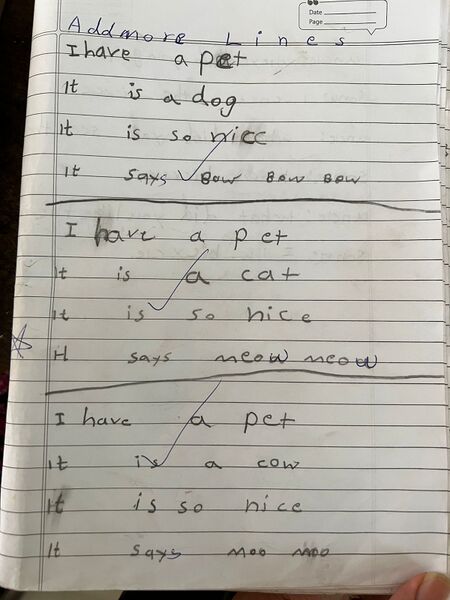 Date
Page
Add more Lines
I have a pet
It is a dog
It is so nice
It says Bow Bow Bow
I have a pet
It is a cat
It is so nice
It says meow meow
I have a pet
It is a cow
It is so nice
It says moo moo